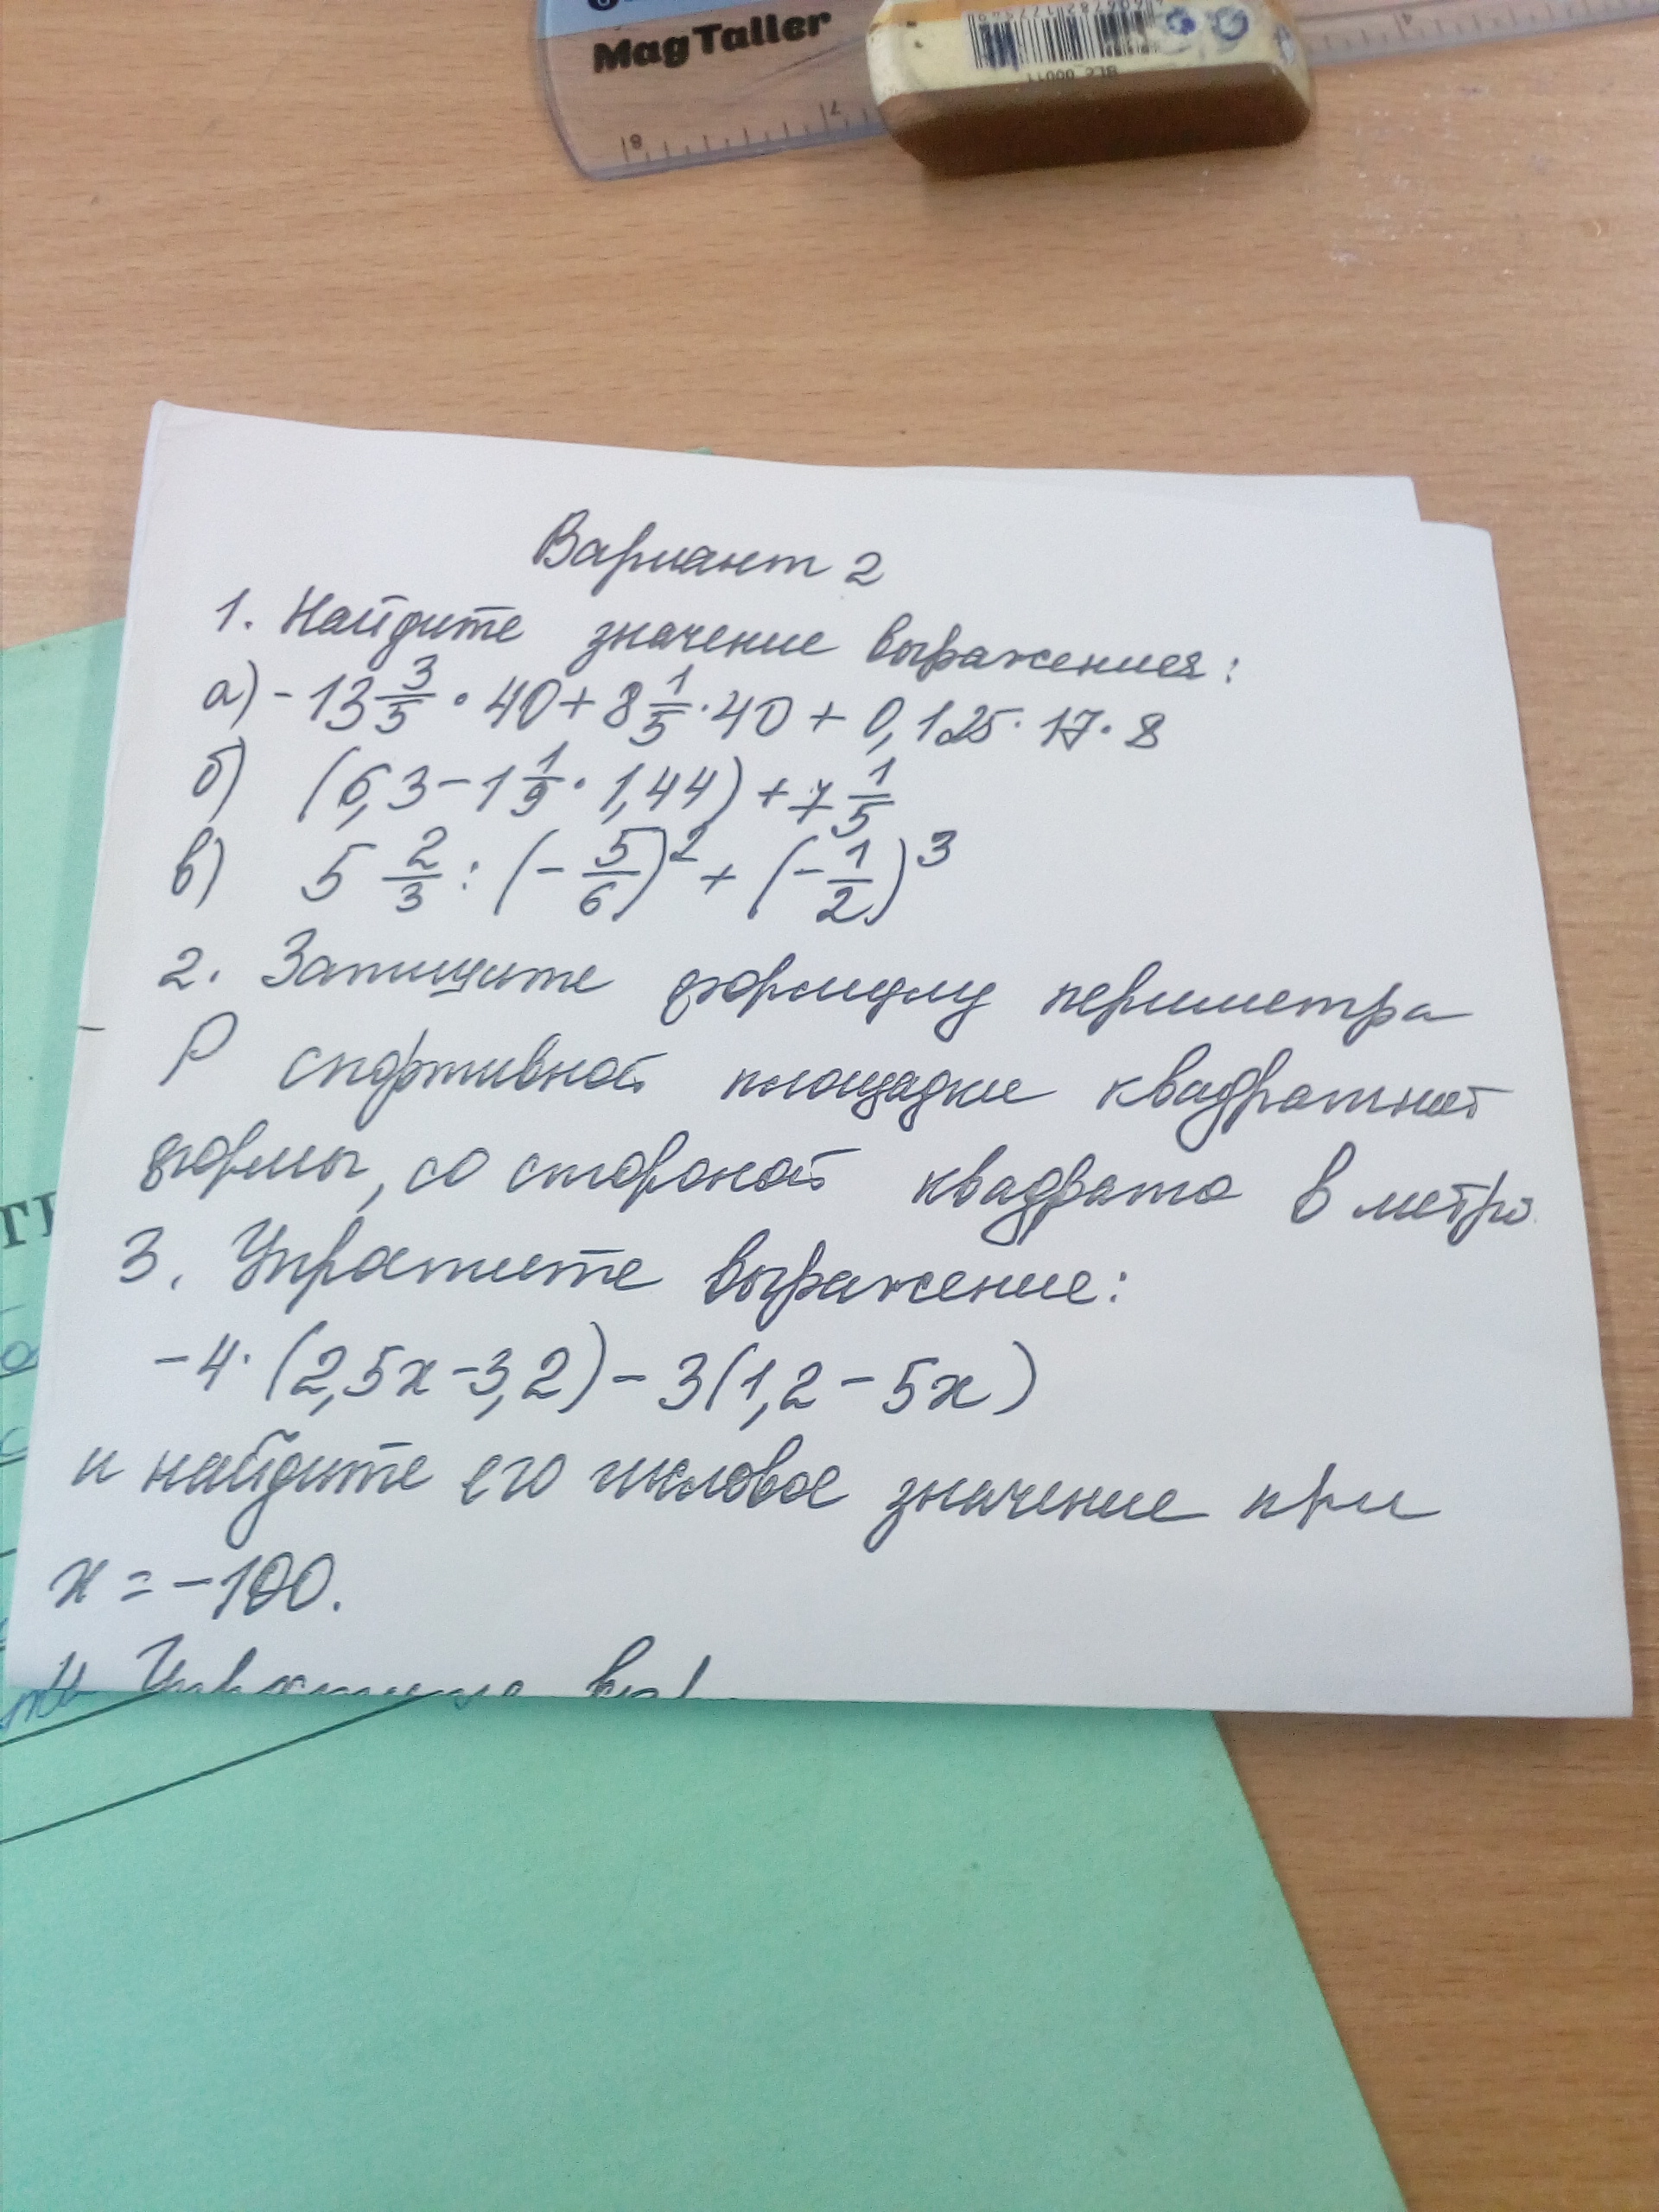 MagTaller
8 7
Вариант 2
1. Найдите значение выражения:
а) - 13 3/5 · 40 + 8 1/5 · 40 + 0,125 · 17 · 8
б) (6,3 - 1 1/9 · 1,44) + 7 1/5
в) 5 2/3 : (- 5/6)² + (- 1/2)³
2. Запишите формулу периметра
P спортивной площадки квадратной
формы, со стороной квадрата в метро
3. Упростите выражение:
-4· (2,5x - 3,2) - 3(1,2 - 5x)
и найдите его числовое значение при
x = -100.